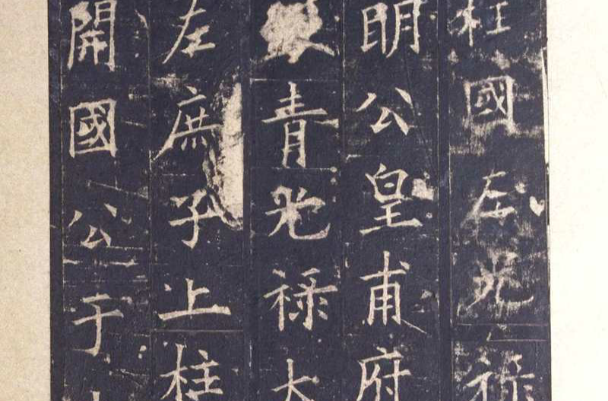 柱國左光祿
明公皇甫府
銀青光祿大
左庶子上柱
開國公于